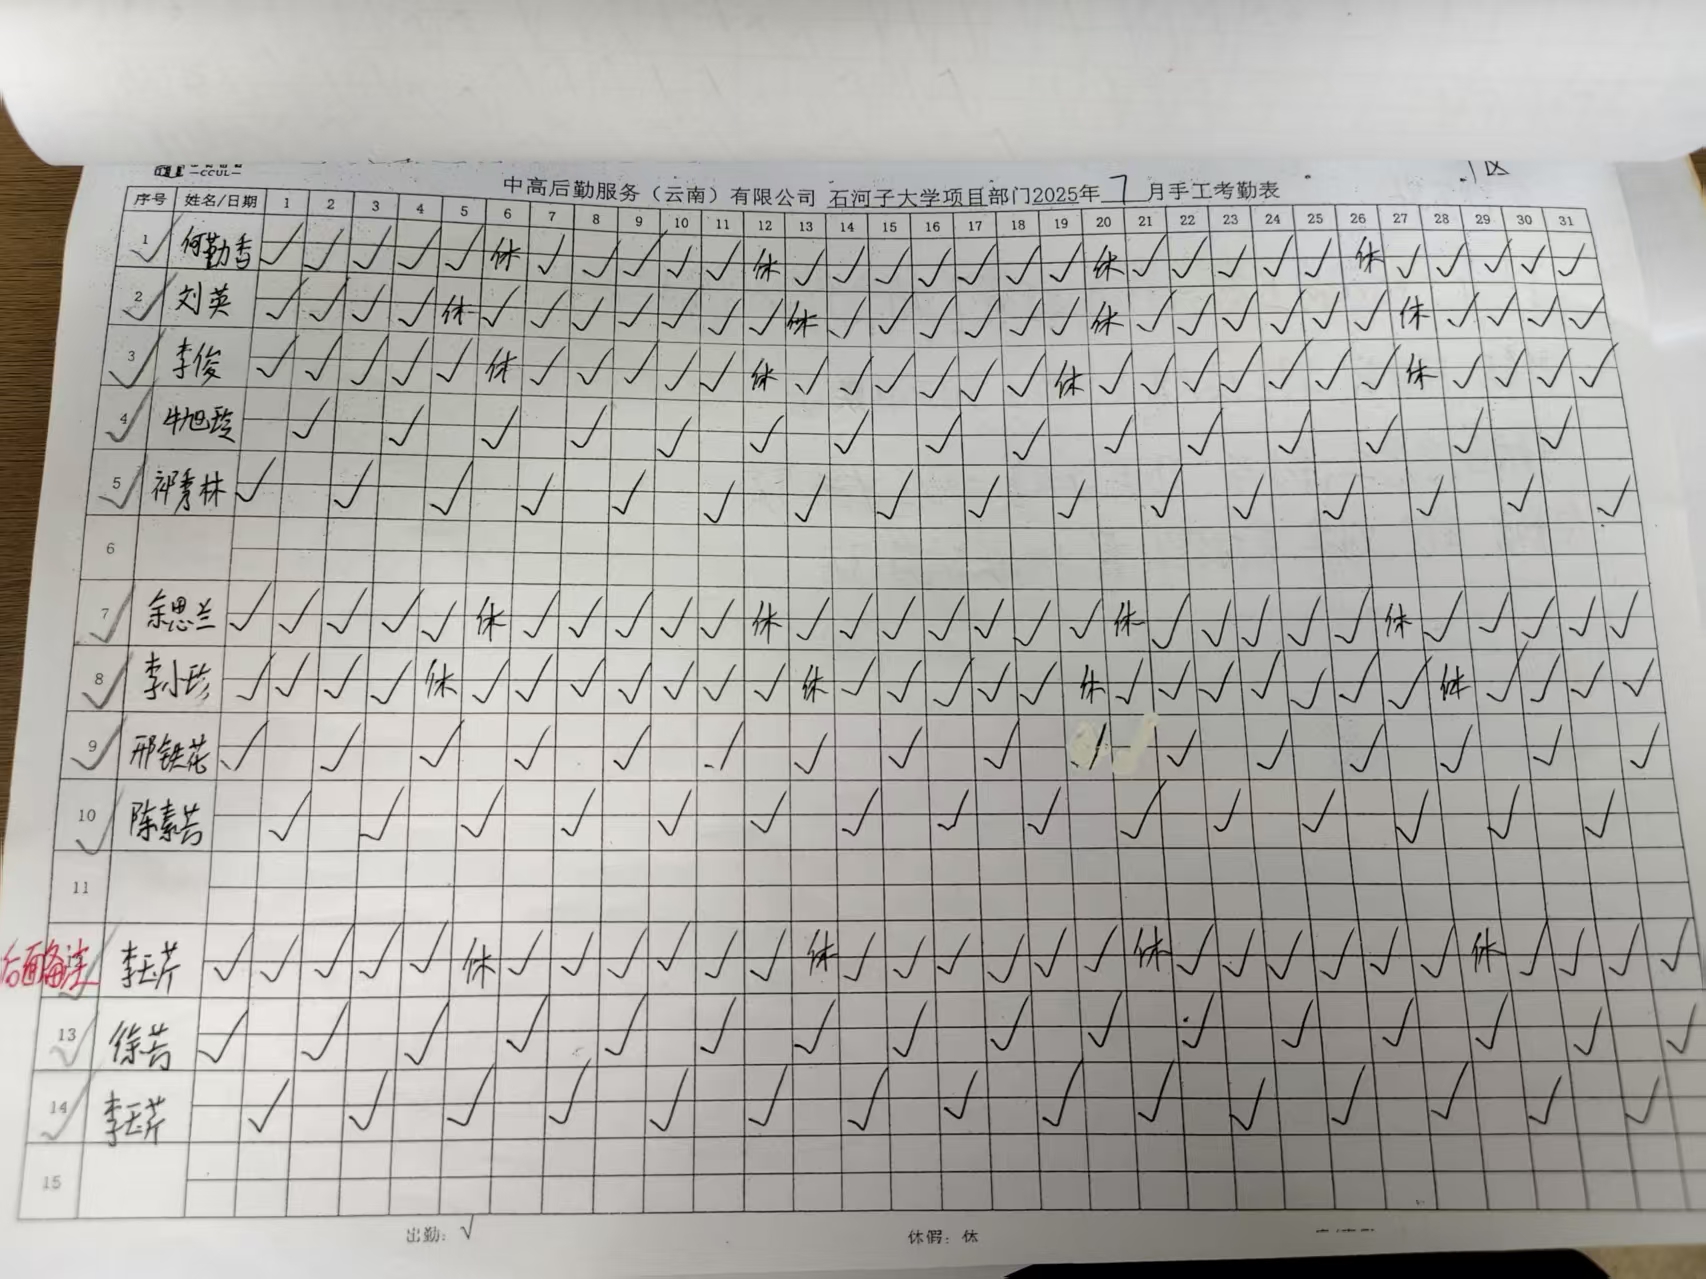 CCUL
1区
中高后勤服务（云南）有限公司 石河子大学项目部门2025年 7 月手工考勤表
序号 姓名/日期 1 2 3 4 5 6 7 8 9 10 11 12 13 14 15 16 17 18 19 20 21 22 23 24 25 26 27 28 29 30 31
1 何勤香 √ √ √ √ √ 休 √ √ √ √ √ 休 √ √ √ √ √ √ √ 休 √ √ √ √ √ 休 √ √ √ √ √
2 刘英 √ √ √ √ 休 √ √ √ √ √ √ √ 休 √ √ √ √ √ √ 休 √ √ √ √ √ √ 休 √ √ √ √
3 李俊 √ √ √ √ √ 休 √ √ √ √ √ 休 √ √ √ √ √ √ 休 √ √ √ √ √ √ √ 休 √ √ √ √
4 牛旭玲 √ √ √ √ √ √ √ √ √ √ √ √ √ √ √
5 祁秀林 √ √ √ √ √ √ √ √ √ √ √ √ √ √ √ √
6
7 余思兰 √ √ √ √ √ 休 √ √ √ √ √ 休 √ √ √ √ √ √ √ 休 √ √ √ √ √ 休 √ √ √ √ √
8 李小珍 √ √ √ √ 休 √ √ √ √ √ √ √ 休 √ √ √ √ √ 休 √ √ √ √ √ √ √ 休 √ √ √ √
9 邢铁花 √ √ √ √ √ √ √ √ √ √ √ √ √ √ √ √
10 陈素芳 √ √ √ √ √ √ √ √ √ √ √ √ √ √ √
11
后面备注 李玉芹 √ √ √ √ √ 休 √ √ √ √ √ √ 休 √ √ √ √ √ √ 休 √ √ √ √ √ √ 休 √ √ √ √
13 徐芳 √ √ √ √ √ √ √ √ √ √ √ √ √ √ √ √
14 李玉芹 √ √ √ √ √ √ √ √ √ √ √ √ √ √ √
15
出勤：√ 休假：休